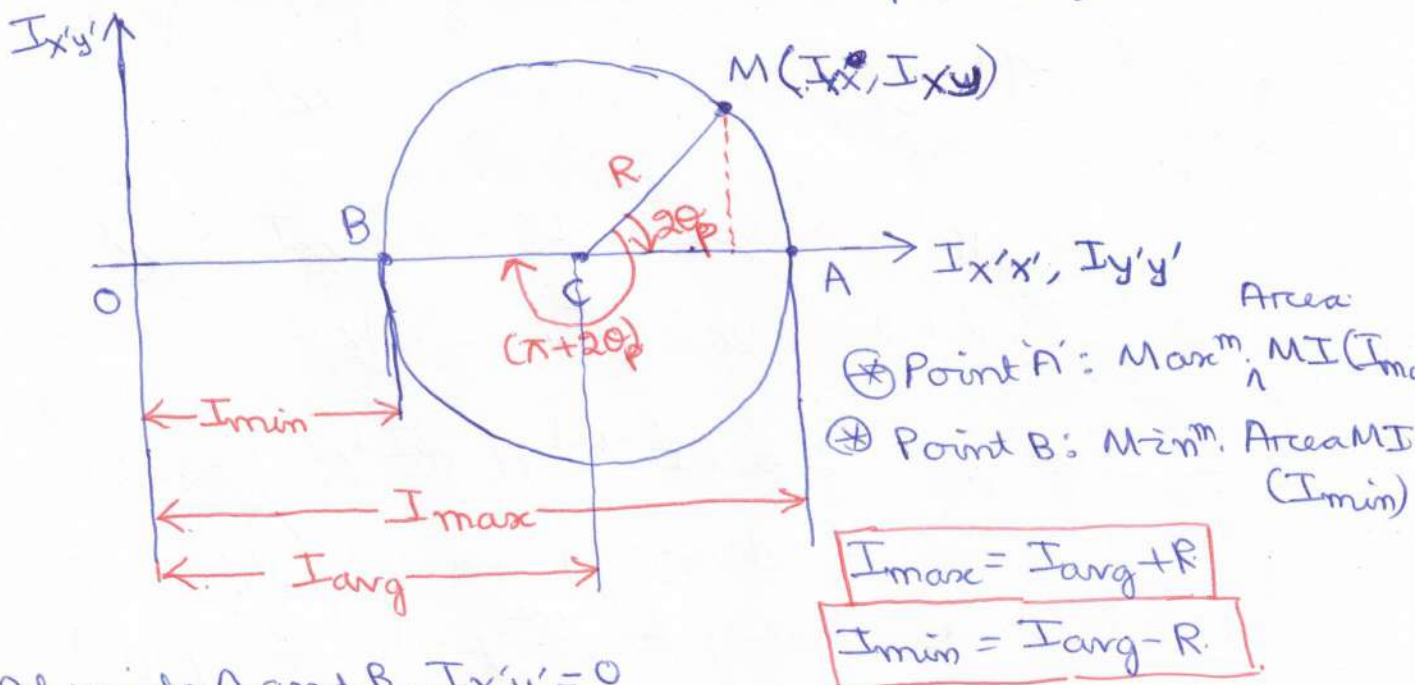 Ix'y'
M(Ix, Ixy)
R
B
2θp
O
C
A
Ix'x', Iy'y'
(π+2θp)
Area
⊛ Point 'A': Maxᵐ. ∧ MI (Ima
Imin
⊛ Point B: Minᵐ. Area MI
(Imin)
Imax
Imax = Iavg + R.
Iavg
Imin = Iavg - R.
A and B, Ix'y' = 0